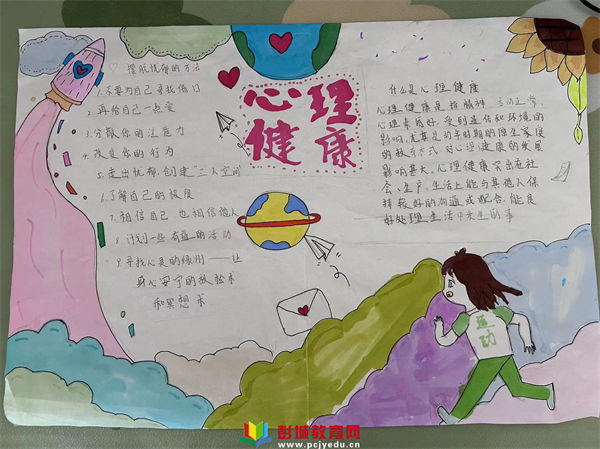 心理
健康
摆脱忧郁的方法
1.不要为自己寻找借口
2.再给自己一点爱
3.分散你的注意力
4.改变你的行为
5.走出忧郁创建“三人空间”
6.了解自己的极度
7.相信自己 也相信他人
8.计划一些有益的活动
9.寻找心灵的绿洲——让
身心安宁的放松术
和冥想术
什么是心理健康
心理健康是指精神、活动正常、
心理素质好。受到遗传和环境的
影响,尤其是幼年时期的原生家庭
的教养方式,对心理健康的发展
影响甚大。心理健康突出在社
会、生产、生活上能与其他人保
持较好的沟通或配合,能良
好处理生活中发生的事
运动
彭城教育网
www.pcjyedu.cn